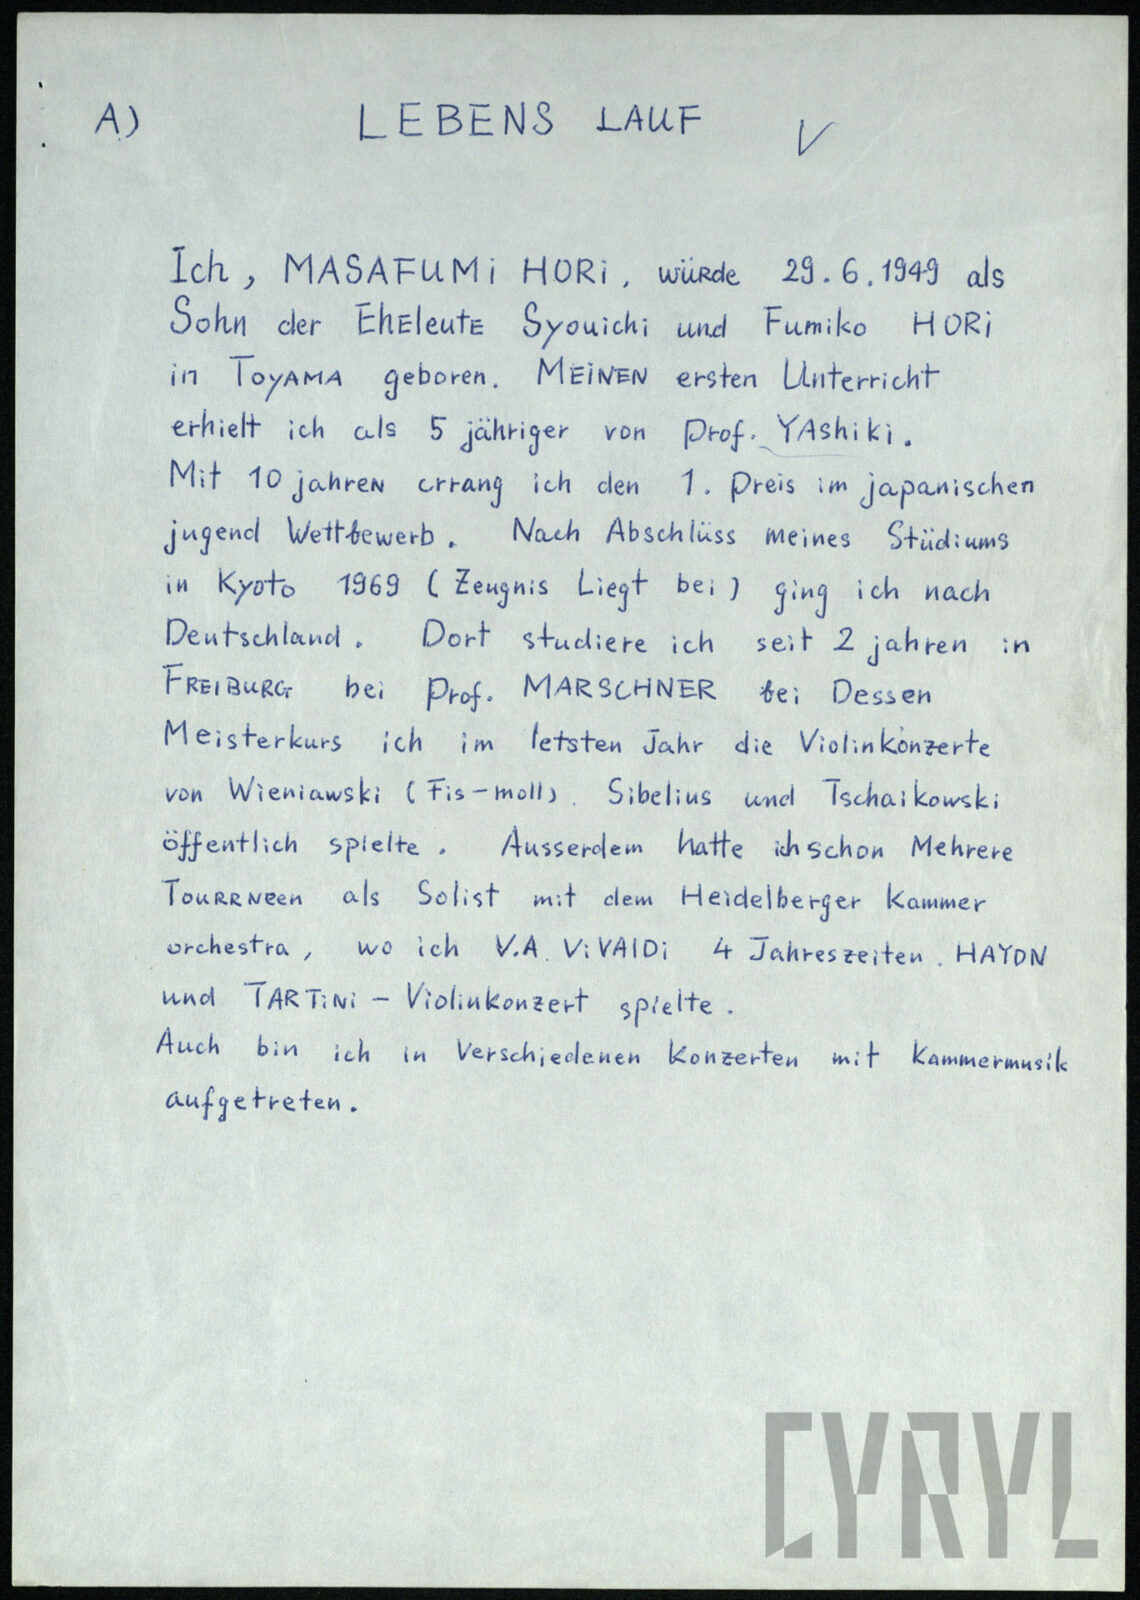 A) LEBENS LAUF V
Ich, MASAFUMi HORi, würde 29.6.1949 als
Sohn der EhEleutE Syouichi und Fumiko HORi
in ToyAMA geboren. MEiNEN ersten Unterricht
erhielt ich als 5 jähriger von Prof. YAshiki.
Mit 10 jahreN errang ich den 1. Preis im japanischen
jugend Wettbewerb. Nach Abschlüss meines Stüdiums
in Kyoto 1969 (Zeugnis Liegt bei) ging ich nach
Deutschland. Dort studiere ich seit 2 jahren in
FREIBURG bei Prof. MARSCHNER bei Dessen
Meisterkurs ich im letsten Jahr die Violinkonzerte
von Wieniawski (Fis-moll). Sibelius und Tschaikowski
öffentlich spielte. Ausserdem hatte ich schon Mehrere
TouRRNeen als Solist mit dem Heidelberger Kammer
orchestra, wo ich V.A. ViVAlDi 4 Jahreszeiten. HAYDN
und TARTiNi - Violinkonzert spielte.
Auch bin ich in Verschiedenen Konzerten mit Kammermusik
aufgetreten.
CYRYL